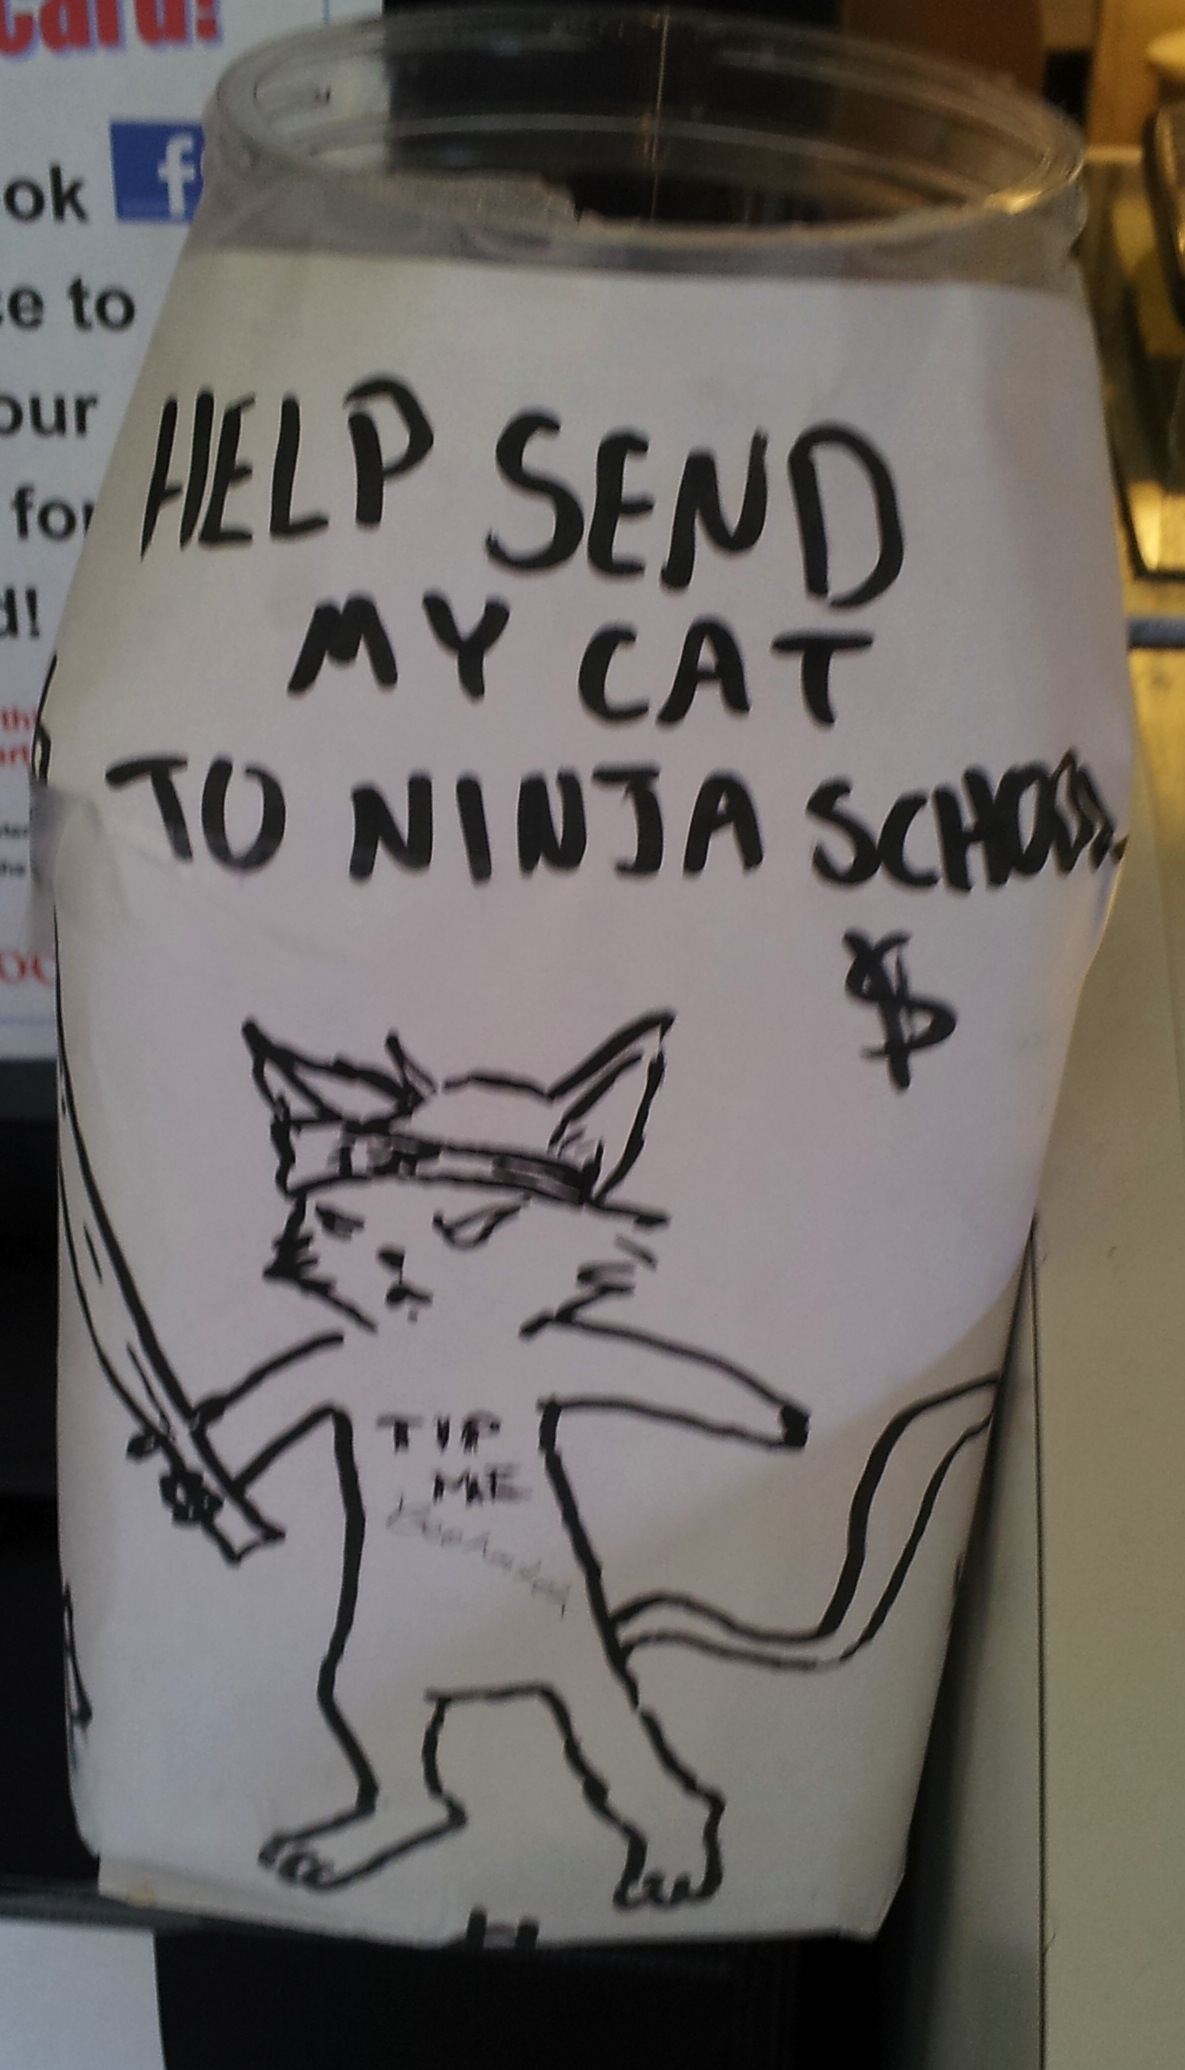 card!
ok f
ce to
our
for
d!
HELP SEND
MY CAT
TO NINJA SCHOOL
$
TIP
ME